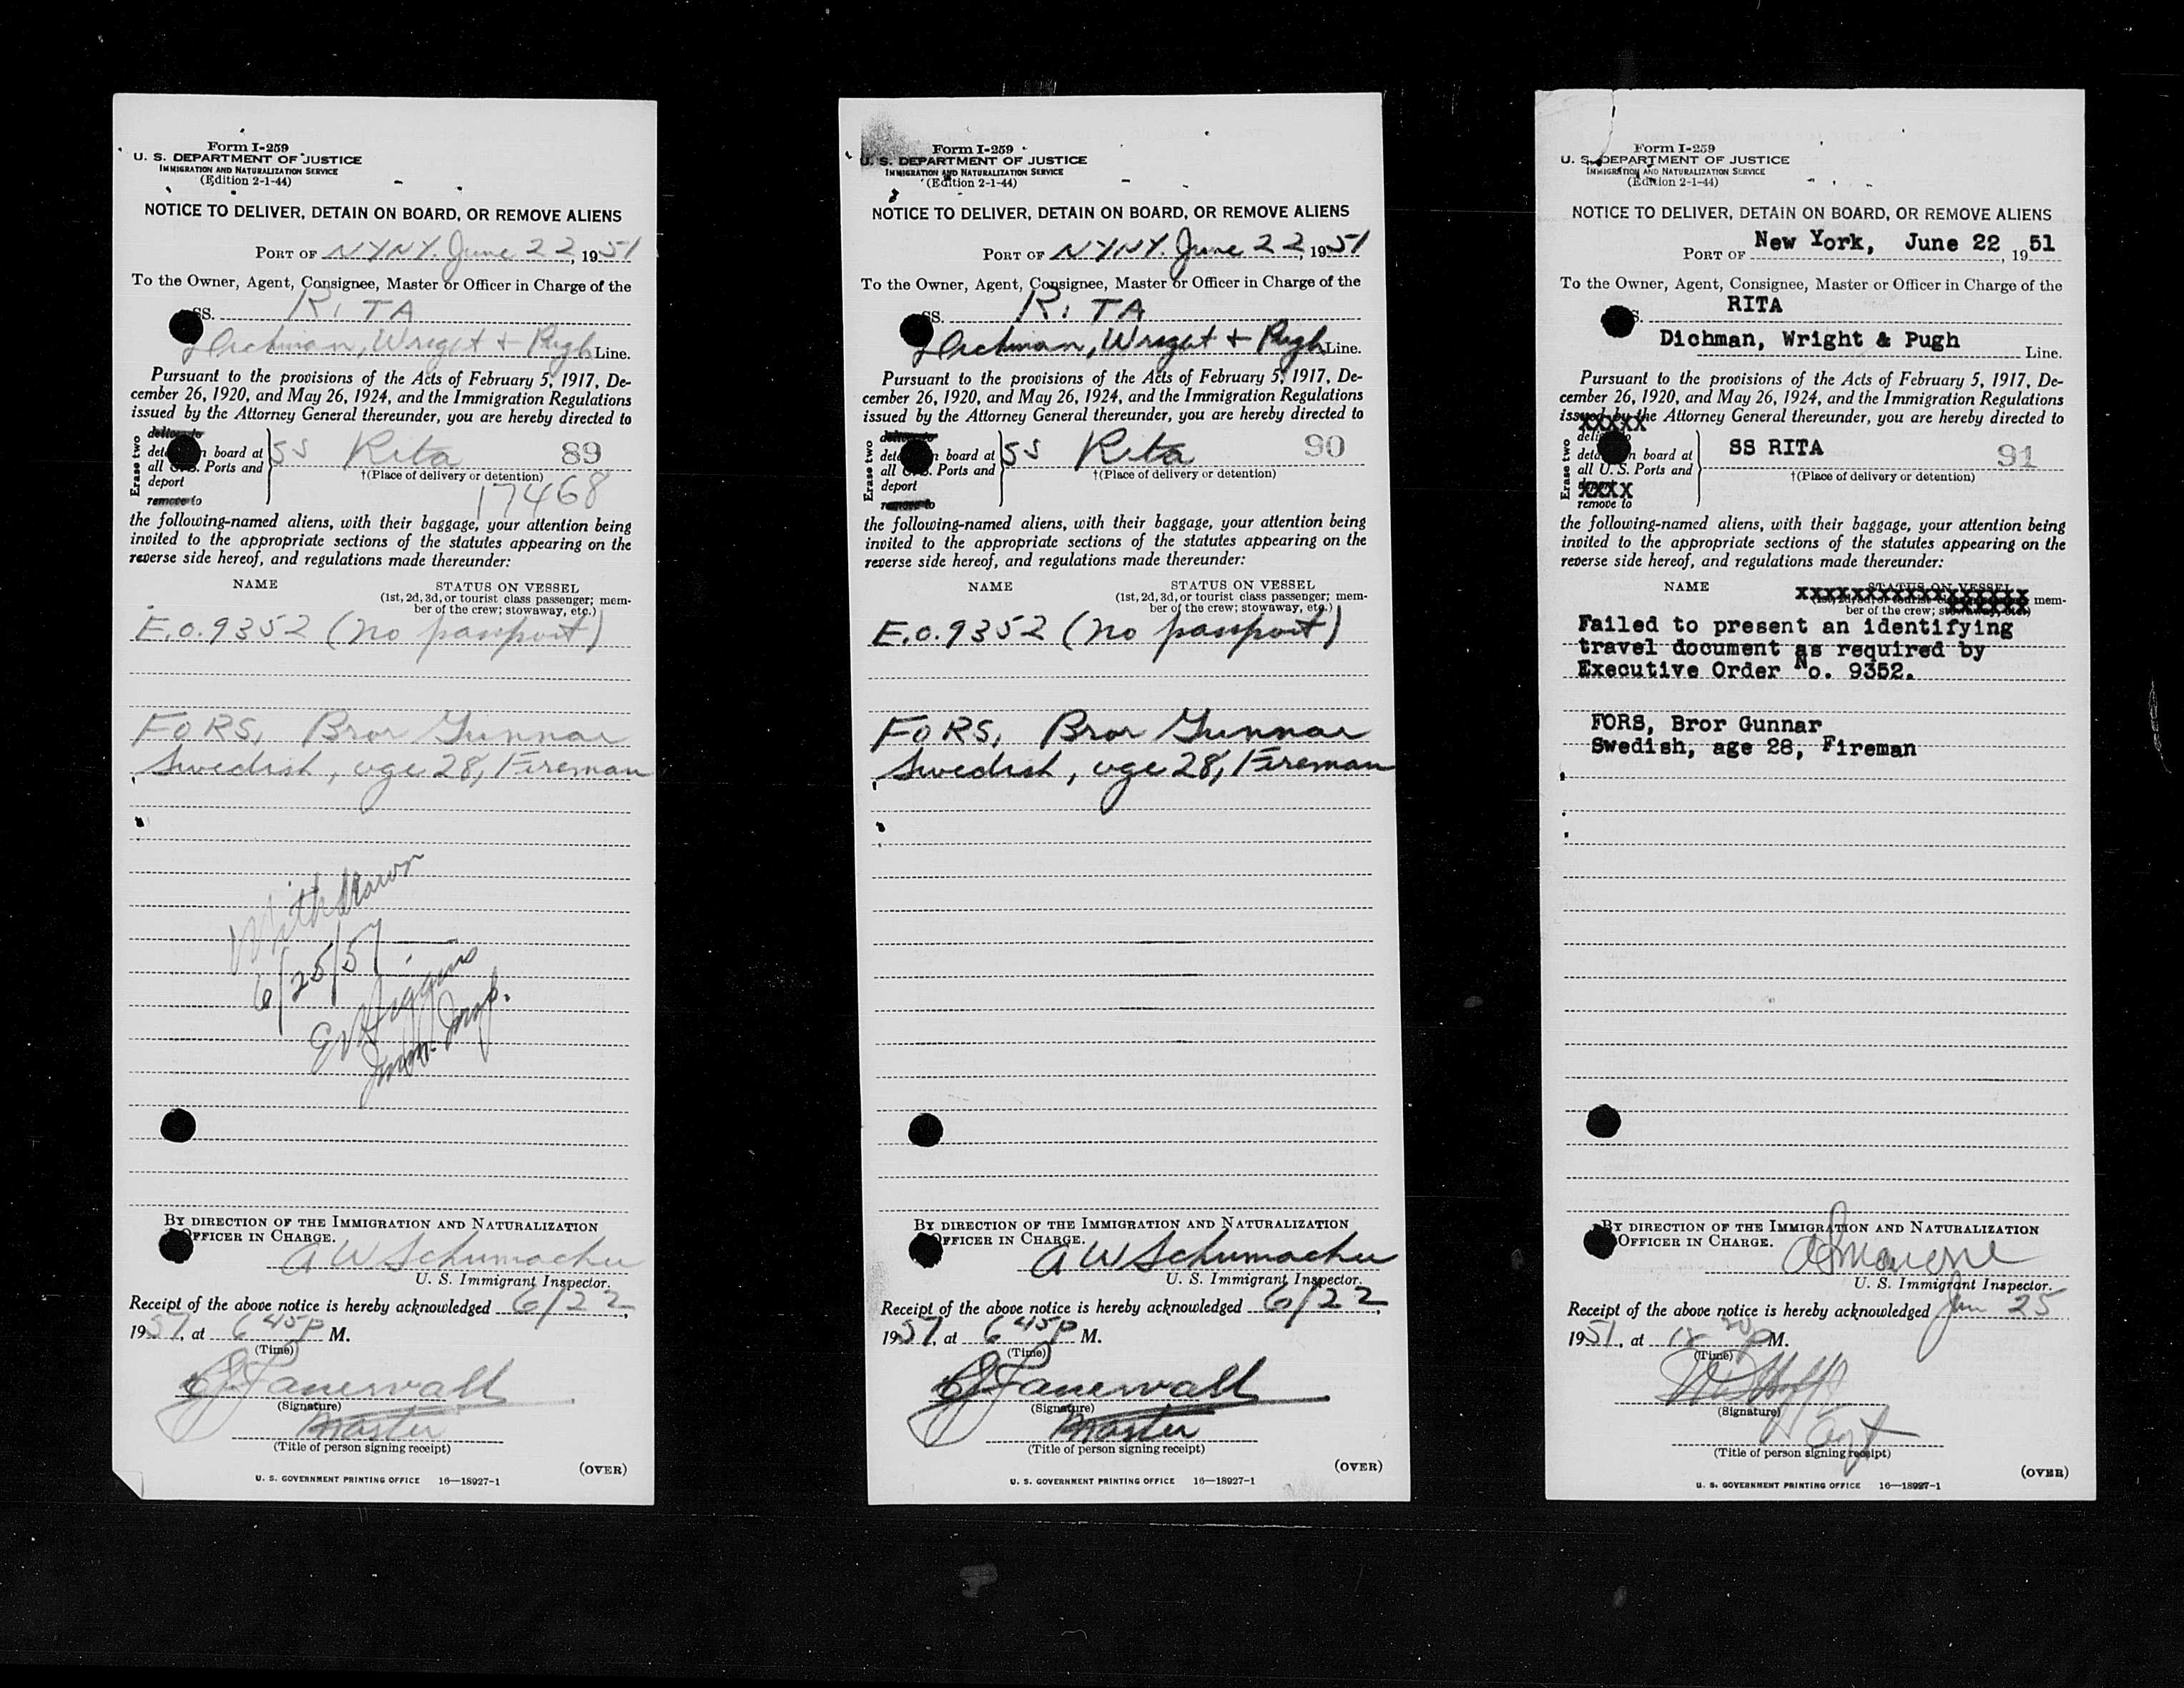 Form I-259
U. S. DEPARTMENT OF JUSTICE
IMMIGRATION AND NATURALIZATION SERVICE
(Edition 2-1-44)
NOTICE TO DELIVER, DETAIN ON BOARD, OR REMOVE ALIENS
PORT OF NYNY. June 22, 1951
To the Owner, Agent, Consignee, Master or Officer in Charge of the
SS. RITA
Dichman, Wright + Pugh Line.
Pursuant to the provisions of the Acts of February 5, 1917, De-
cember 26, 1920, and May 26, 1924, and the Immigration Regulations
issued by the Attorney General thereunder, you are hereby directed to
Erase two
deliver to
board at SS Rita 89
all U.S. Ports and †(Place of delivery or detention)
deport 17468
remove to
the following-named aliens, with their baggage, your attention being
invited to the appropriate sections of the statutes appearing on the
reverse side hereof, and regulations made thereunder:
NAME STATUS ON VESSEL
(1st, 2d, 3d, or tourist class passenger; mem-
ber of the crew; stowaway, etc.)
E.O. 9352 (no passport)
FORS, Bror Gunnar
Swedish, age 28, Fireman
Withdrawn
6/25/51
Imm. Insp.
BY DIRECTION OF THE IMMIGRATION AND NATURALIZATION
OFFICER IN CHARGE.
A W Schumacher
U. S. Immigrant Inspector.
Receipt of the above notice is hereby acknowledged 6/22,
1951, at 6 45 P M.
(Time)
(Signature)
Master
(Title of person signing receipt)
(OVER)
U. S. GOVERNMENT PRINTING OFFICE 16—18927-1
Form I-259
U. S. DEPARTMENT OF JUSTICE
IMMIGRATION AND NATURALIZATION SERVICE
(Edition 2-1-44)
NOTICE TO DELIVER, DETAIN ON BOARD, OR REMOVE ALIENS
PORT OF NYNY. June 22, 1951
To the Owner, Agent, Consignee, Master or Officer in Charge of the
SS. RITA
Dichman, Wright + Pugh Line.
Pursuant to the provisions of the Acts of February 5, 1917, De-
cember 26, 1920, and May 26, 1924, and the Immigration Regulations
issued by the Attorney General thereunder, you are hereby directed to
Erase two
deliver to
board at SS Rita 90
all U.S. Ports and †(Place of delivery or detention)
deport
remove to
the following-named aliens, with their baggage, your attention being
invited to the appropriate sections of the statutes appearing on the
reverse side hereof, and regulations made thereunder:
NAME STATUS ON VESSEL
(1st, 2d, 3d, or tourist class passenger; mem-
ber of the crew; stowaway, etc.)
E.O. 9352 (no passport)
FORS, Bror Gunnar
Swedish, age 28, Fireman
BY DIRECTION OF THE IMMIGRATION AND NATURALIZATION
OFFICER IN CHARGE.
A W Schumacher
U. S. Immigrant Inspector.
Receipt of the above notice is hereby acknowledged 6/22,
1951, at 6 45 P M.
(Time)
(Signature)
Master
(Title of person signing receipt)
(OVER)
U. S. GOVERNMENT PRINTING OFFICE 16—18927-1
Form I-259
U. S. DEPARTMENT OF JUSTICE
IMMIGRATION AND NATURALIZATION SERVICE
(Edition 2-1-44)
NOTICE TO DELIVER, DETAIN ON BOARD, OR REMOVE ALIENS
PORT OF New York, June 22, 1951
To the Owner, Agent, Consignee, Master or Officer in Charge of the
RITA
Dichman, Wright & Pugh Line.
Pursuant to the provisions of the Acts of February 5, 1917, De-
cember 26, 1920, and May 26, 1924, and the Immigration Regulations
issued by the Attorney General thereunder, you are hereby directed to
Erase two
board at SS RITA 91
all U.S. Ports and †(Place of delivery or detention)
XXXX
remove to
the following-named aliens, with their baggage, your attention being
invited to the appropriate sections of the statutes appearing on the
reverse side hereof, and regulations made thereunder:
NAME STATUS ON VESSEL
mem-
ber of the crew;
Failed to present an identifying
travel document as required by
Executive Order No. 9352.
FORS, Bror Gunnar
Swedish, age 28, Fireman
BY DIRECTION OF THE IMMIGRATION AND NATURALIZATION
OFFICER IN CHARGE.
U. S. Immigrant Inspector.
Receipt of the above notice is hereby acknowledged Jun 25
1951, at M.
(Time)
(Signature)
(Title of person signing receipt)
(OVER)
U. S. GOVERNMENT PRINTING OFFICE 16—18927-1